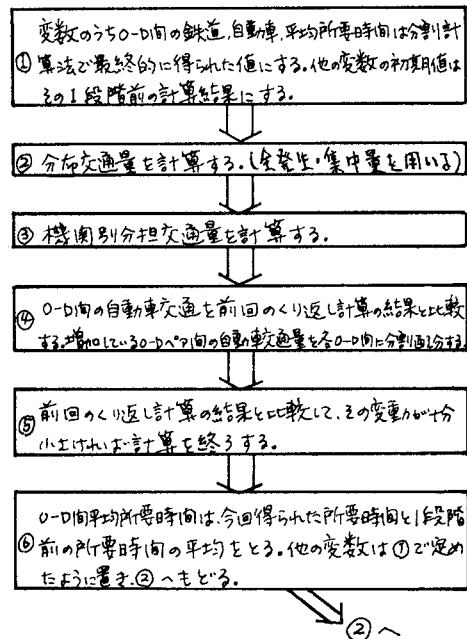 変数のうちO-D間の鉄道,自動車,平均所要時間は分割計
① 算法で最終的に得られた値にする。他の変数の初期値は
その1段階前の計算結果にする。
② 分布交通量を計算する。(全発生・集中量を用いる)
③ 機関別分担交通量を計算する。
O-D間の自動車交通を前回のくり返し計算の結果と比較
④ する。増加しているO-Dペア間の自動車交通量を各O-D間に分割配分する。
前回のくり返し計算の結果と比較して、その変動が十分
⑤ 小さければ計算を終了する。
O-D間平均所要時間は、今回得られた所要時間と1段階
⑥ 前の所要時間の平均をとる。他の変数は①で定め
たように置き、②へもどる。
②へ